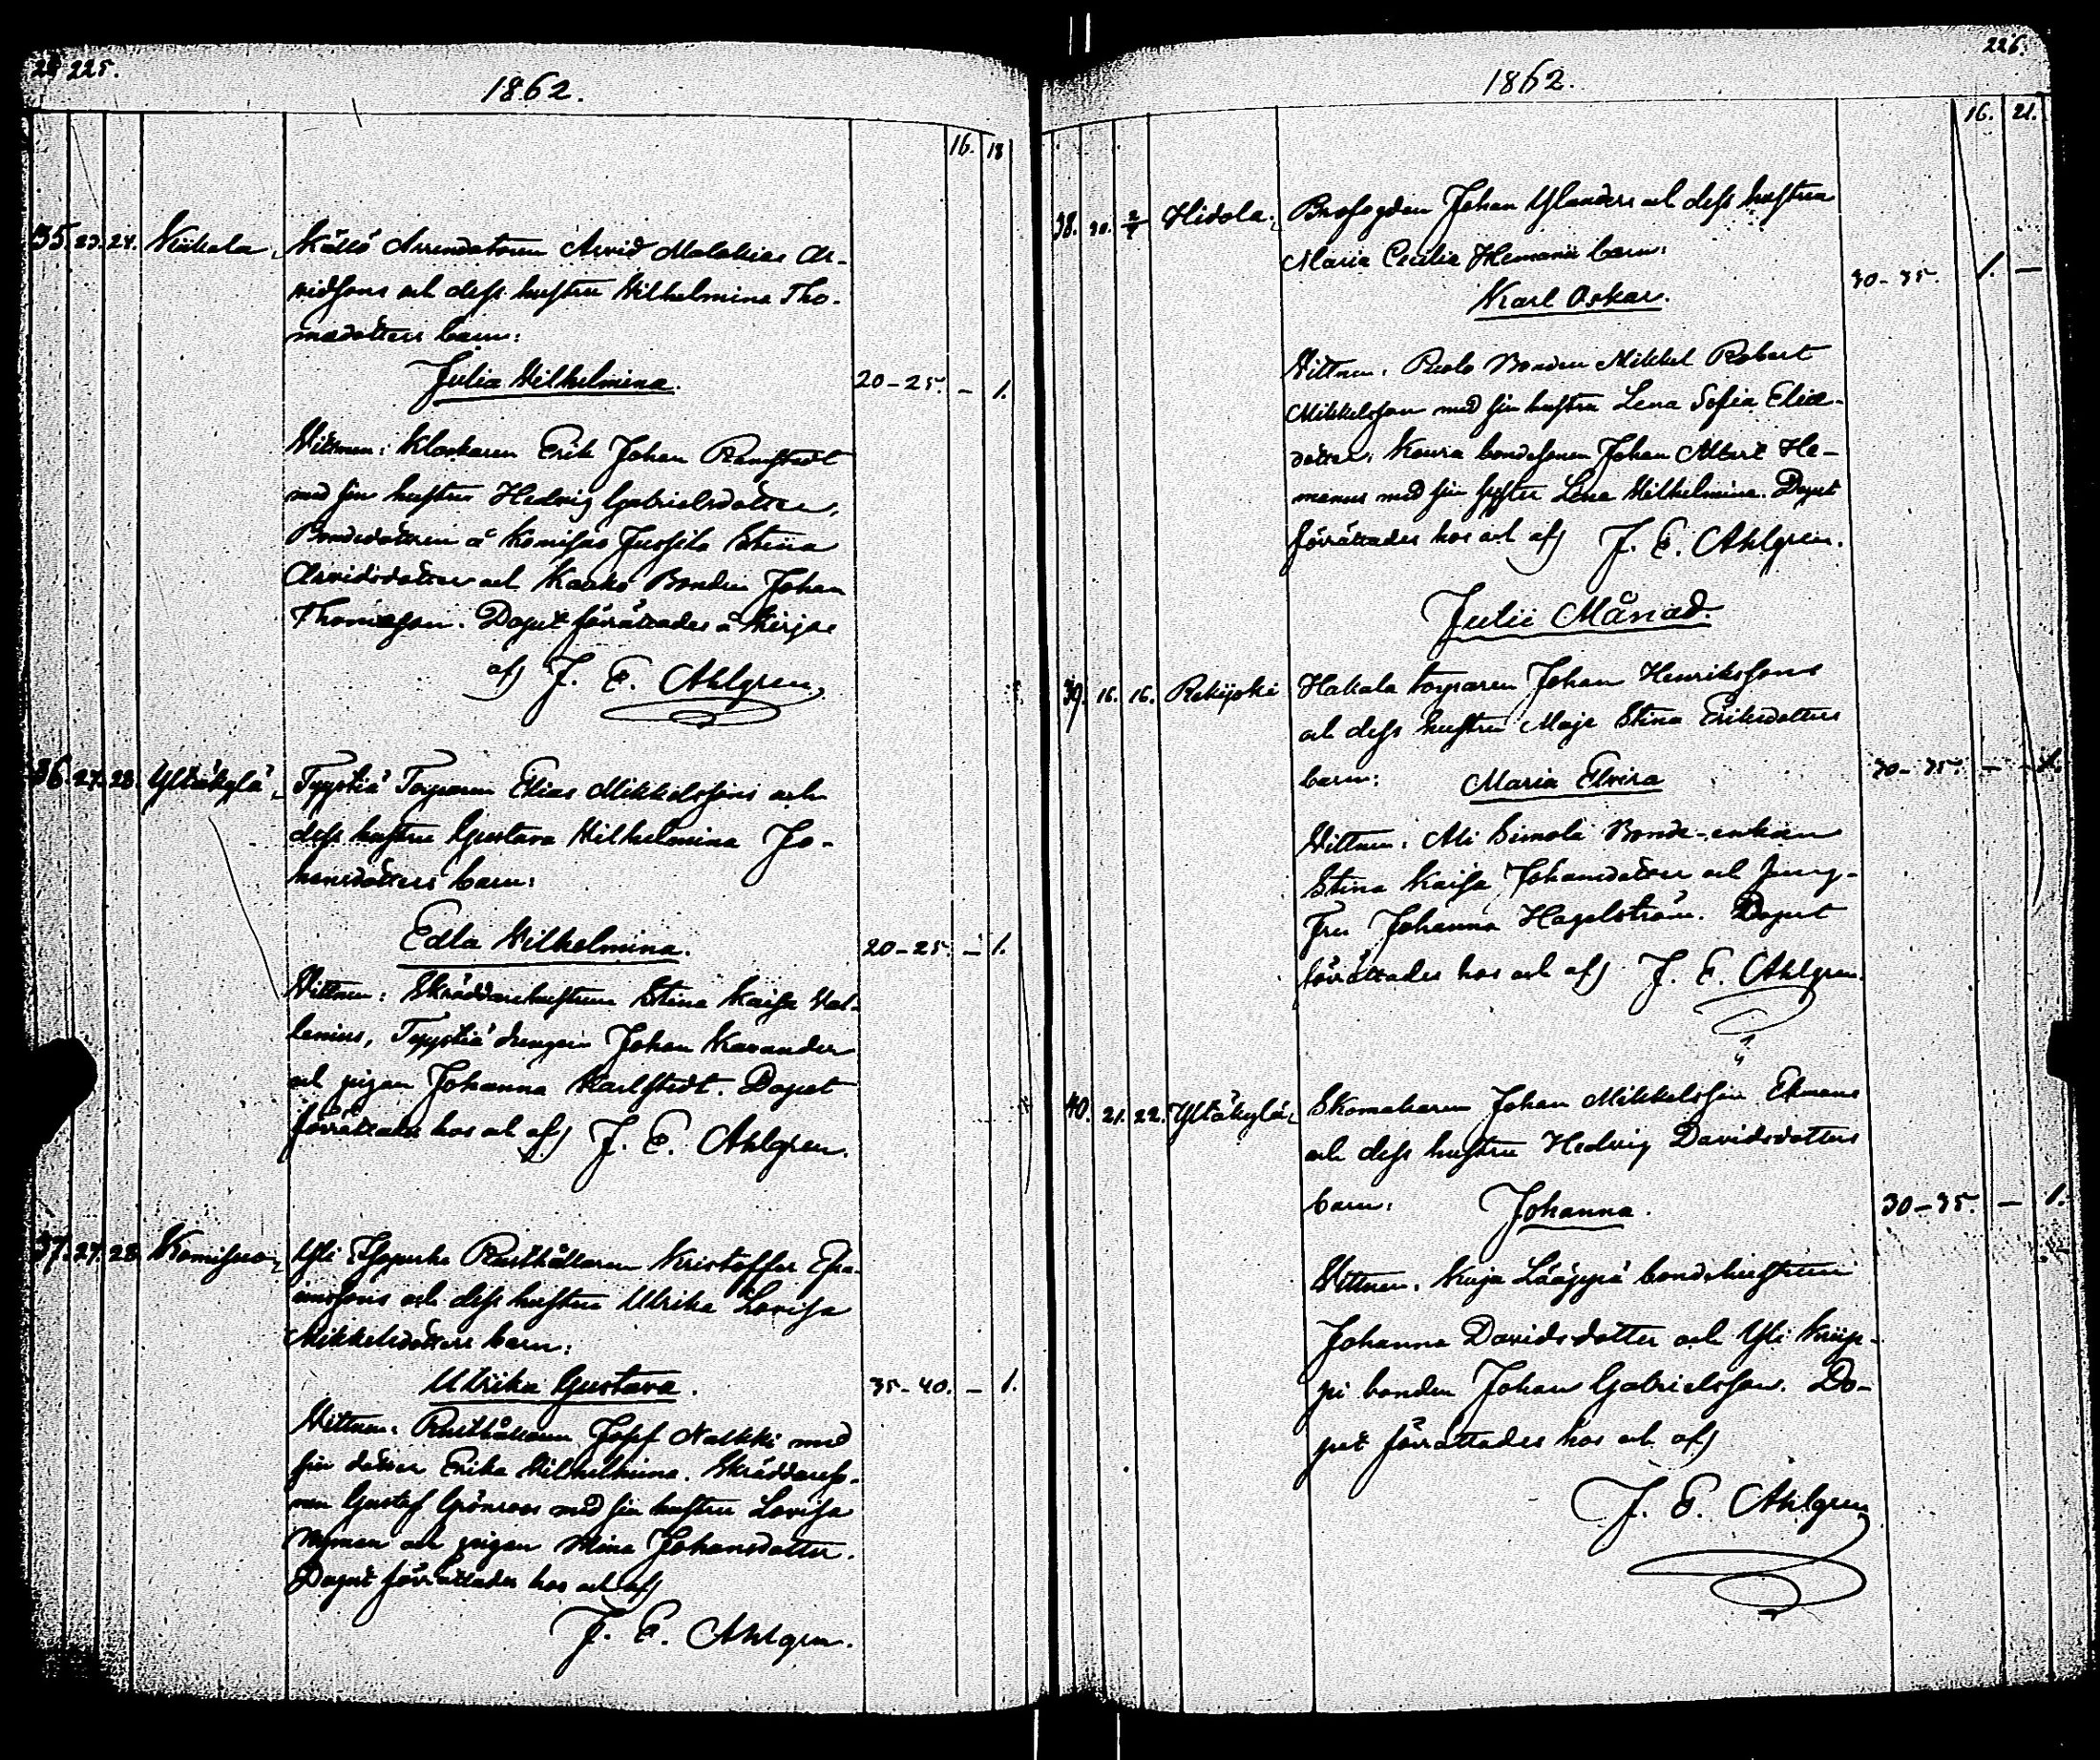 225.
1862.
16. 18
35. 23. 24. Niukala, Källö Arrendatorn Arvid Malakias Ar-
vidssons och dess hustru Wilhelmina Tho-
madotters barn:
Julia Wilhelmina. 20-25. - 1.
Vittnen: Klockaren Erik Johan Ramstedt
med sin hustru Hedvig Gabrielsdotter,
Bondedottren å Komisuo Jussila Stina
Arvidsdotter och Kaukö Bonden Johan
Thomasson. Dopet förrättades å
af J. E. Ahlgren,
36. 27. 28. Yltäkylä, Tyystiä Torparen Elias Mikkelssons och
dess hustru Gustava Wilhelmina Jo-
hansdotters barn:
Edla Wilhelmina. 20-25. - 1.
Vittnen: Skräddarehustrun Stina Kaisa Val-
lenius, Tyystiä drengen Johan Kavander
och pigan Johanna Karlstedt. Dopet
förrättades hos och af J. E. Ahlgren.
37. 27. 28. Komisuo, Yli Rusthållaren Kristoffer Esa-
iassons och dess hustru Ulrika Lovisa
Mikkelsdotters barn:
Ulrika Gustava. 35-40. - 1.
Vittnen: Rusthållaren Josef Nalkki med
sin dotter Erika Wilhelmina. Skräddareso-
nen Gustaf Grönroos med sin hustru Lovisa
Nyman och pigan Mina Johansdotter.
Dopet förrättades hos och af
J. E. Ahlgren.
226.
1862.
16. 21.
38. 30. 2/7 Hidola, Brofogden Johan Ylanders och dess hustru
Maria Cecilia Hemanis barn:
Karl Oskar. 30-35. 1. -
Vittnen: Bonden Mikkel Robert
Mikkelsson med sin hustru Lena Sofia Elia-
dotter, Koura bondesonen Johan Albert He-
manus med sin syster Lena Wilhelmina. Dopet
förrättades hos och af J. E. Ahlgren.
Julii Månad.
39. 16. 16. Rekijoki Hakala torparen Johan Henrikssons
och dess hustru Maja Stina Eriksdotters
barn: Maria Elvira 30-35. - 1.
Vittnen: Ali Simola Bonde-enkan
Stina Kaisa Johansdotter och Jung-
fru Johanna Hagelström. Dopet
förrättades hos och af J. E. Ahlgren.
40. 21. 22. Yltäkylä, Skomakaren Johan Mikkelsson Ekmans
och dess hustru Hedvig Davidsdotters
barn: Johanna. 30-35. - 1.
Vittnen: Kuja Lääppä bondehustrun
Johanna Davidsdotter och Yli Knüp-
pi bonden Johan Gabrielsson. Do-
pet förrättades hos och af
J. E. Ahlgren